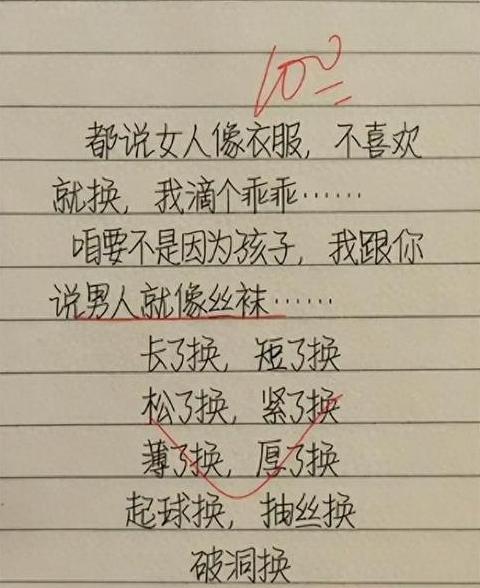 100
都说女人像衣服，不喜欢
就换，我滴个乖乖……
咱要不是因为孩子，我跟你
说男人就像丝袜……
长了换，短了换
松了换，紧了换
薄了换，厚了换
起球换，抽丝换
破洞换